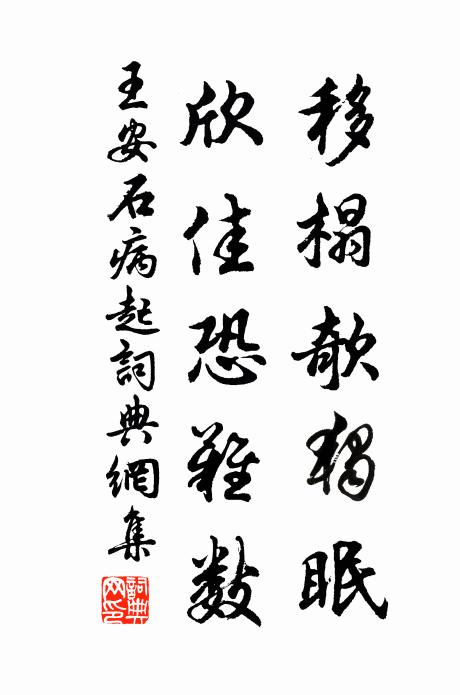 移榻欹獨眠
欣佳恐難數
王安石病起詞典網集
詞典網印